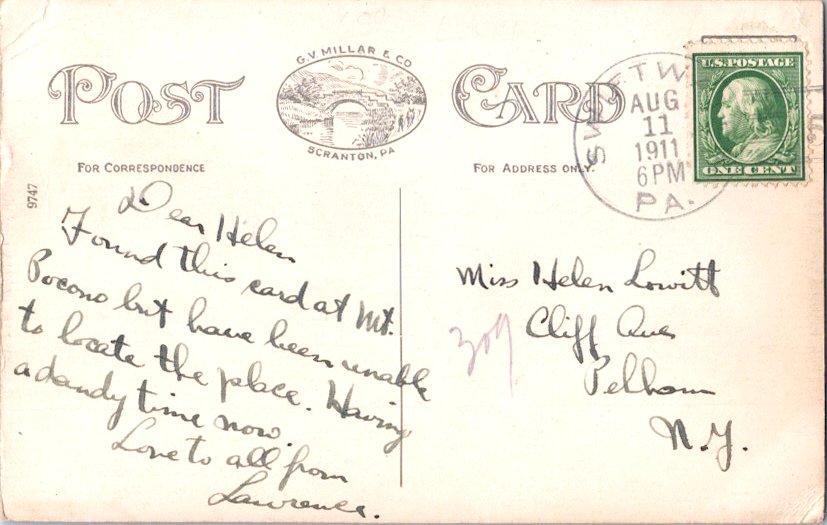 POST CARD
G.V. MILLAR & CO
SCRANTON, PA
FOR CORRESPONDENCE
FOR ADDRESS ONLY.
9747
AUG
11
1911
6PM
PA.
U.S. POSTAGE
ONE CENT
Dear Helen
Found this card at Mt.
Pocono but have been unable
to locate the place. Having
a dandy time now.
Love to all from
Lawrence.
Miss Helen Lowitt
309
Cliff Ave
Pelham
N.Y.